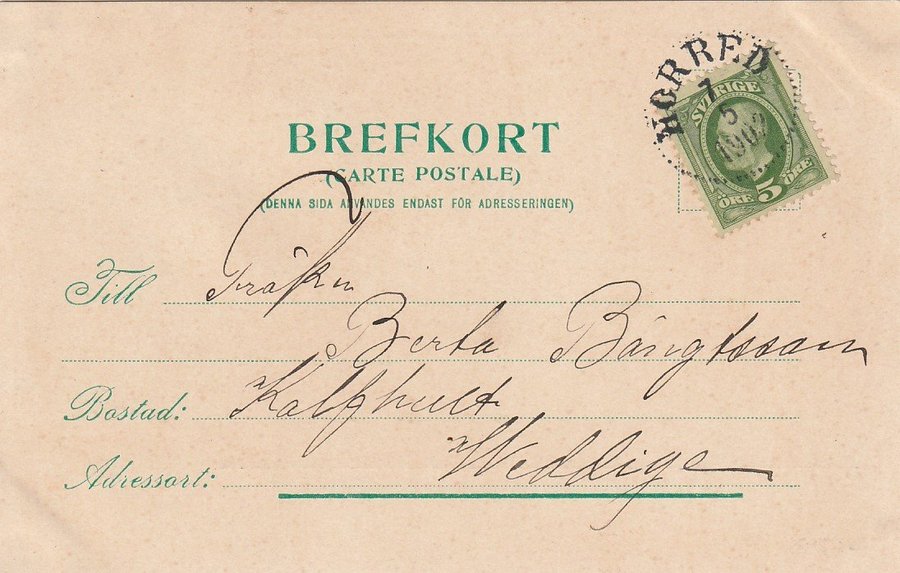 HORRED
7
5
1902
SVERIGE
ÖRE 5 ÖRE
BREFKORT
(CARTE POSTALE)
(DENNA SIDA ANVÄNDES ENDAST FÖR ADRESSERINGEN)
Till Fröken
Berta Bängtsson
Bostad: Kalfhult
Adressort: Weddige